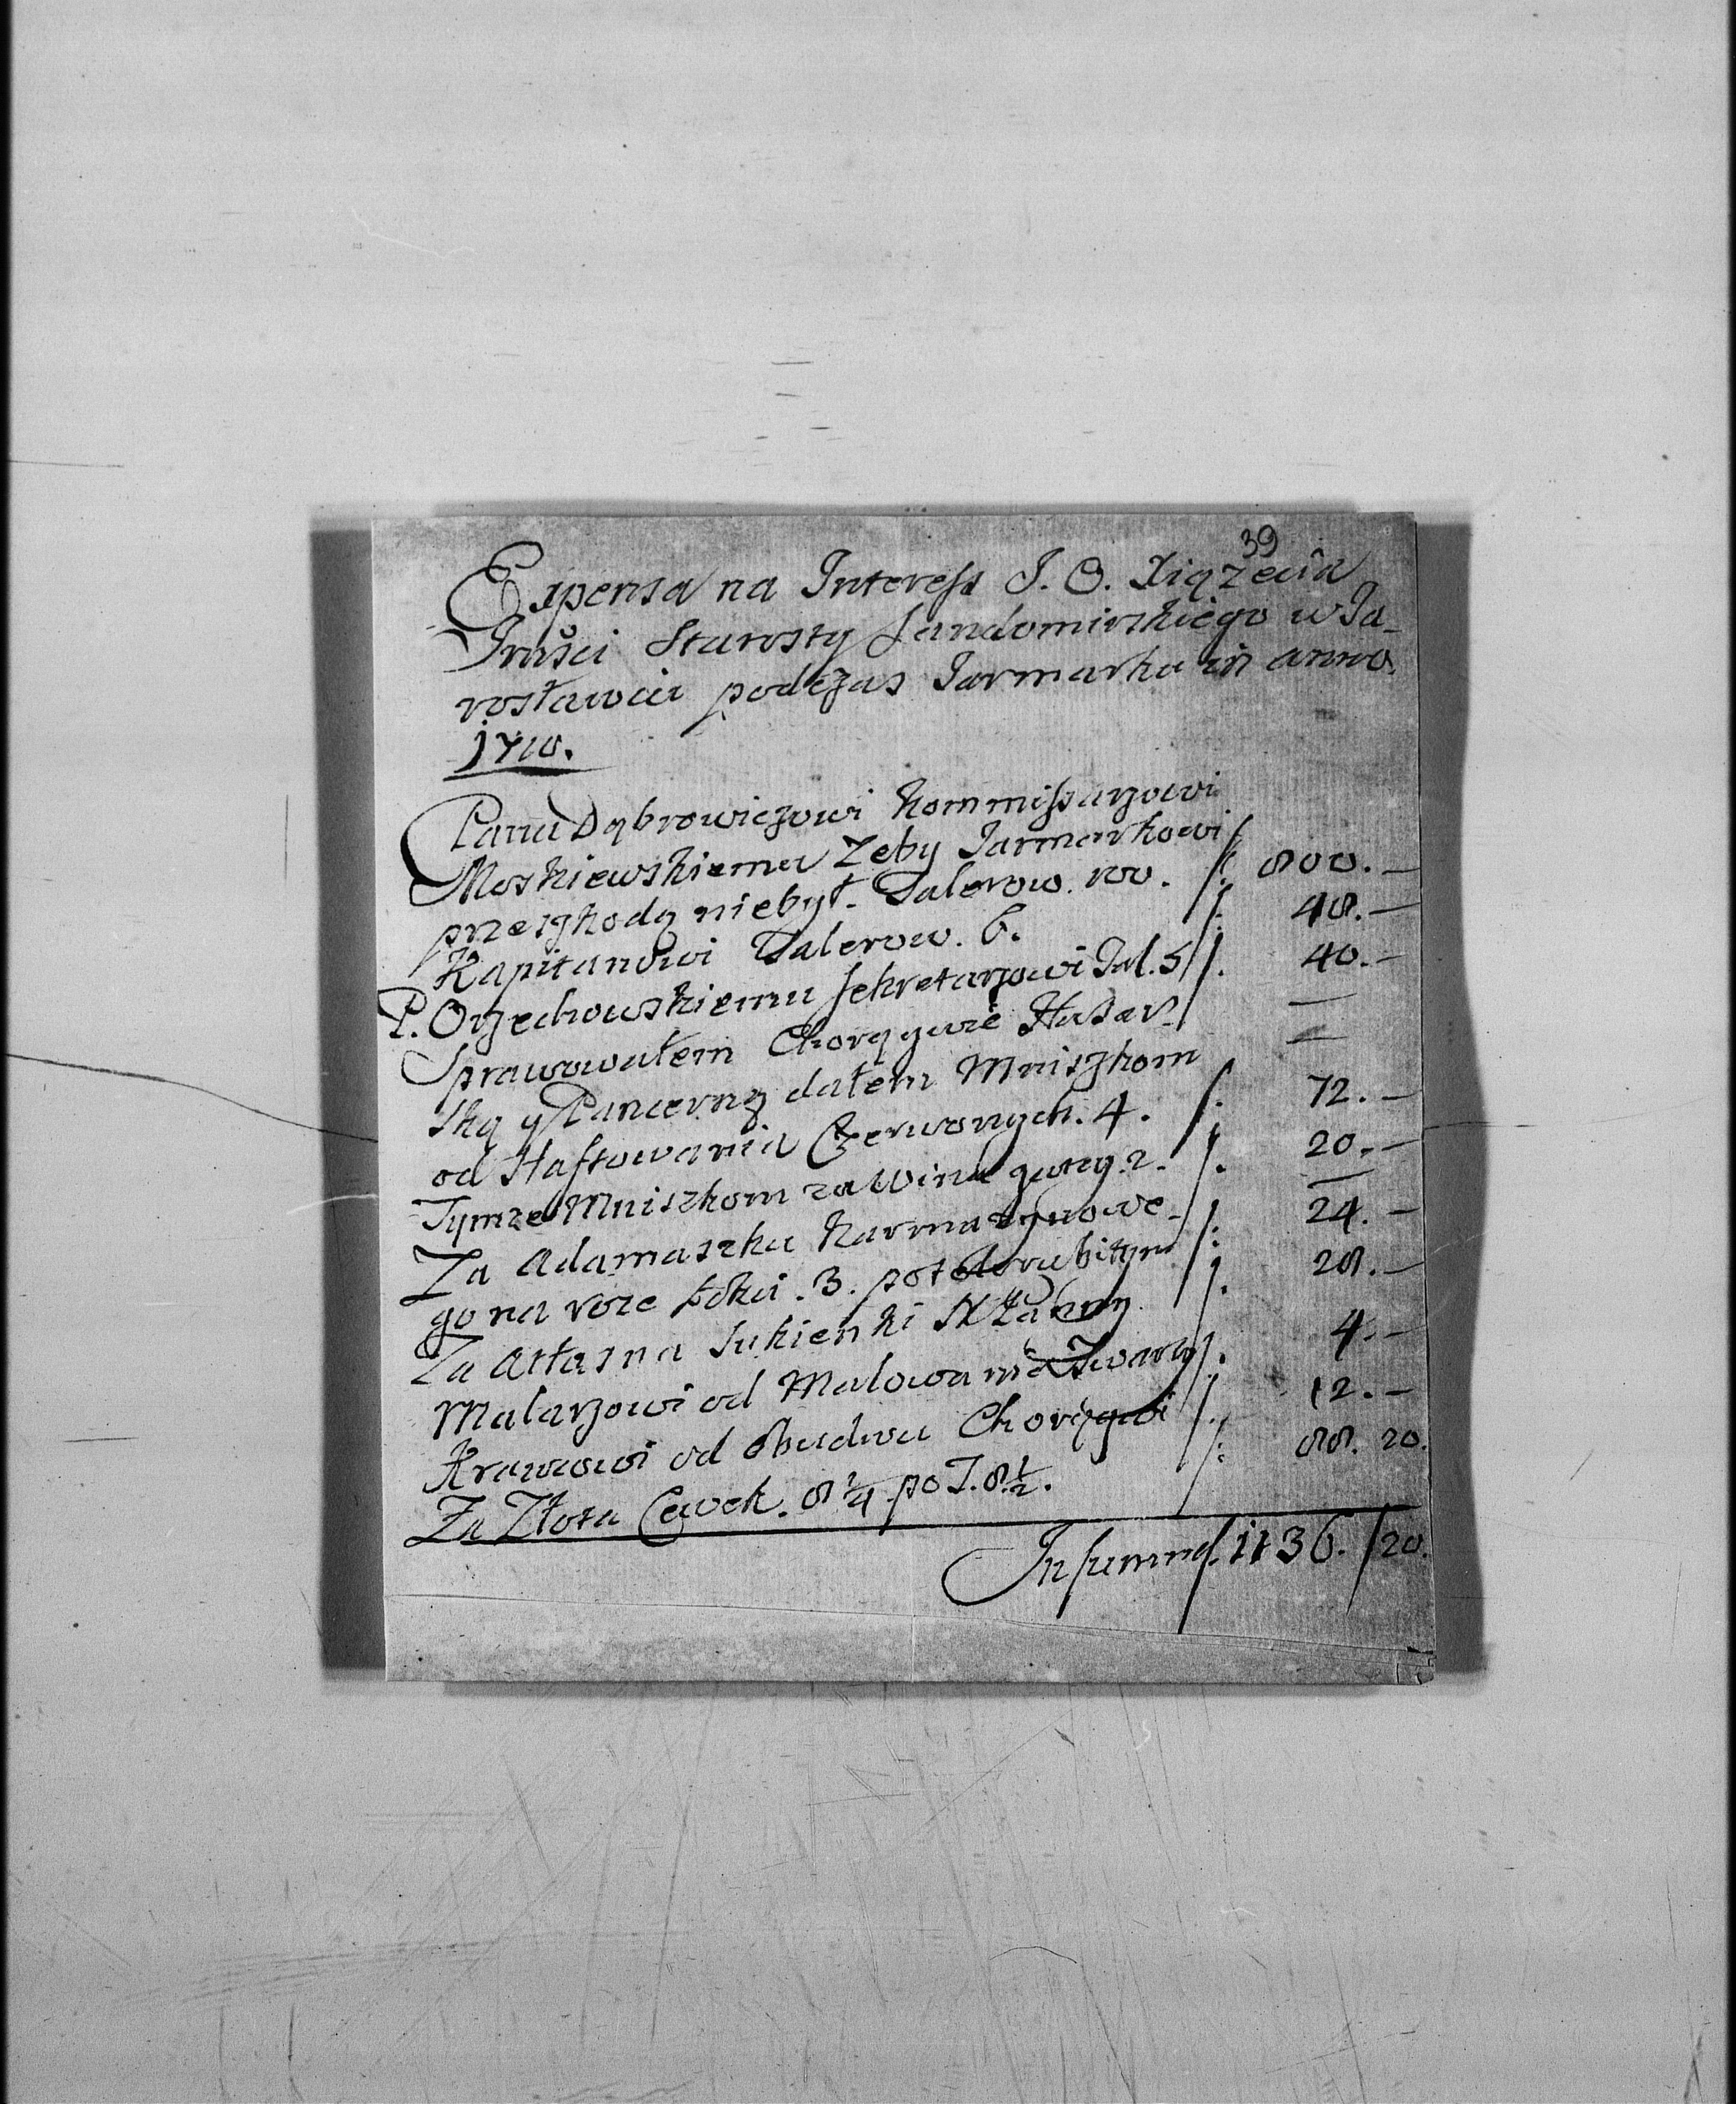 39
Expensa na Interess J. O. Xiązęcia
Jmści Starosty Sandomirskiego w Ja-
rosławiu podczas Jarmarku in anno
1710.
Panu Dąbrowiczowi Kommissarzowi
Moskiewskiemu Zeby Jarmarkowi
przeszkodą niebył. Talerow. 100. /. 800.—
Kapitanowi Talerow. 6. /. 48.—
P. Orzechowskiemu Sekretarzowi Tal. 5 /. 40.—
Sprawowałem Chorągwie Husar- —
ską y Pancerną dałem Mniszkom —
od Haftowania Czerwonych. 4. /. 72.—
Tymże Mniszkom za Wina garcy. 2. /. 20.—
Za Adamaszku Karmazynowe- —
go na roze Łokci. 3. po /: 24.—
Za Atłas na Sukienki /. 28.—
Malarzowi od Malowania Twarzy /. 4.—
Krawcowi od Obudwu Chorągwi /. 12.—
Za Złota Cewek. 8 1/4 po T. 8 1/2. /: 88. 20.
In summa f. 1136. /20.